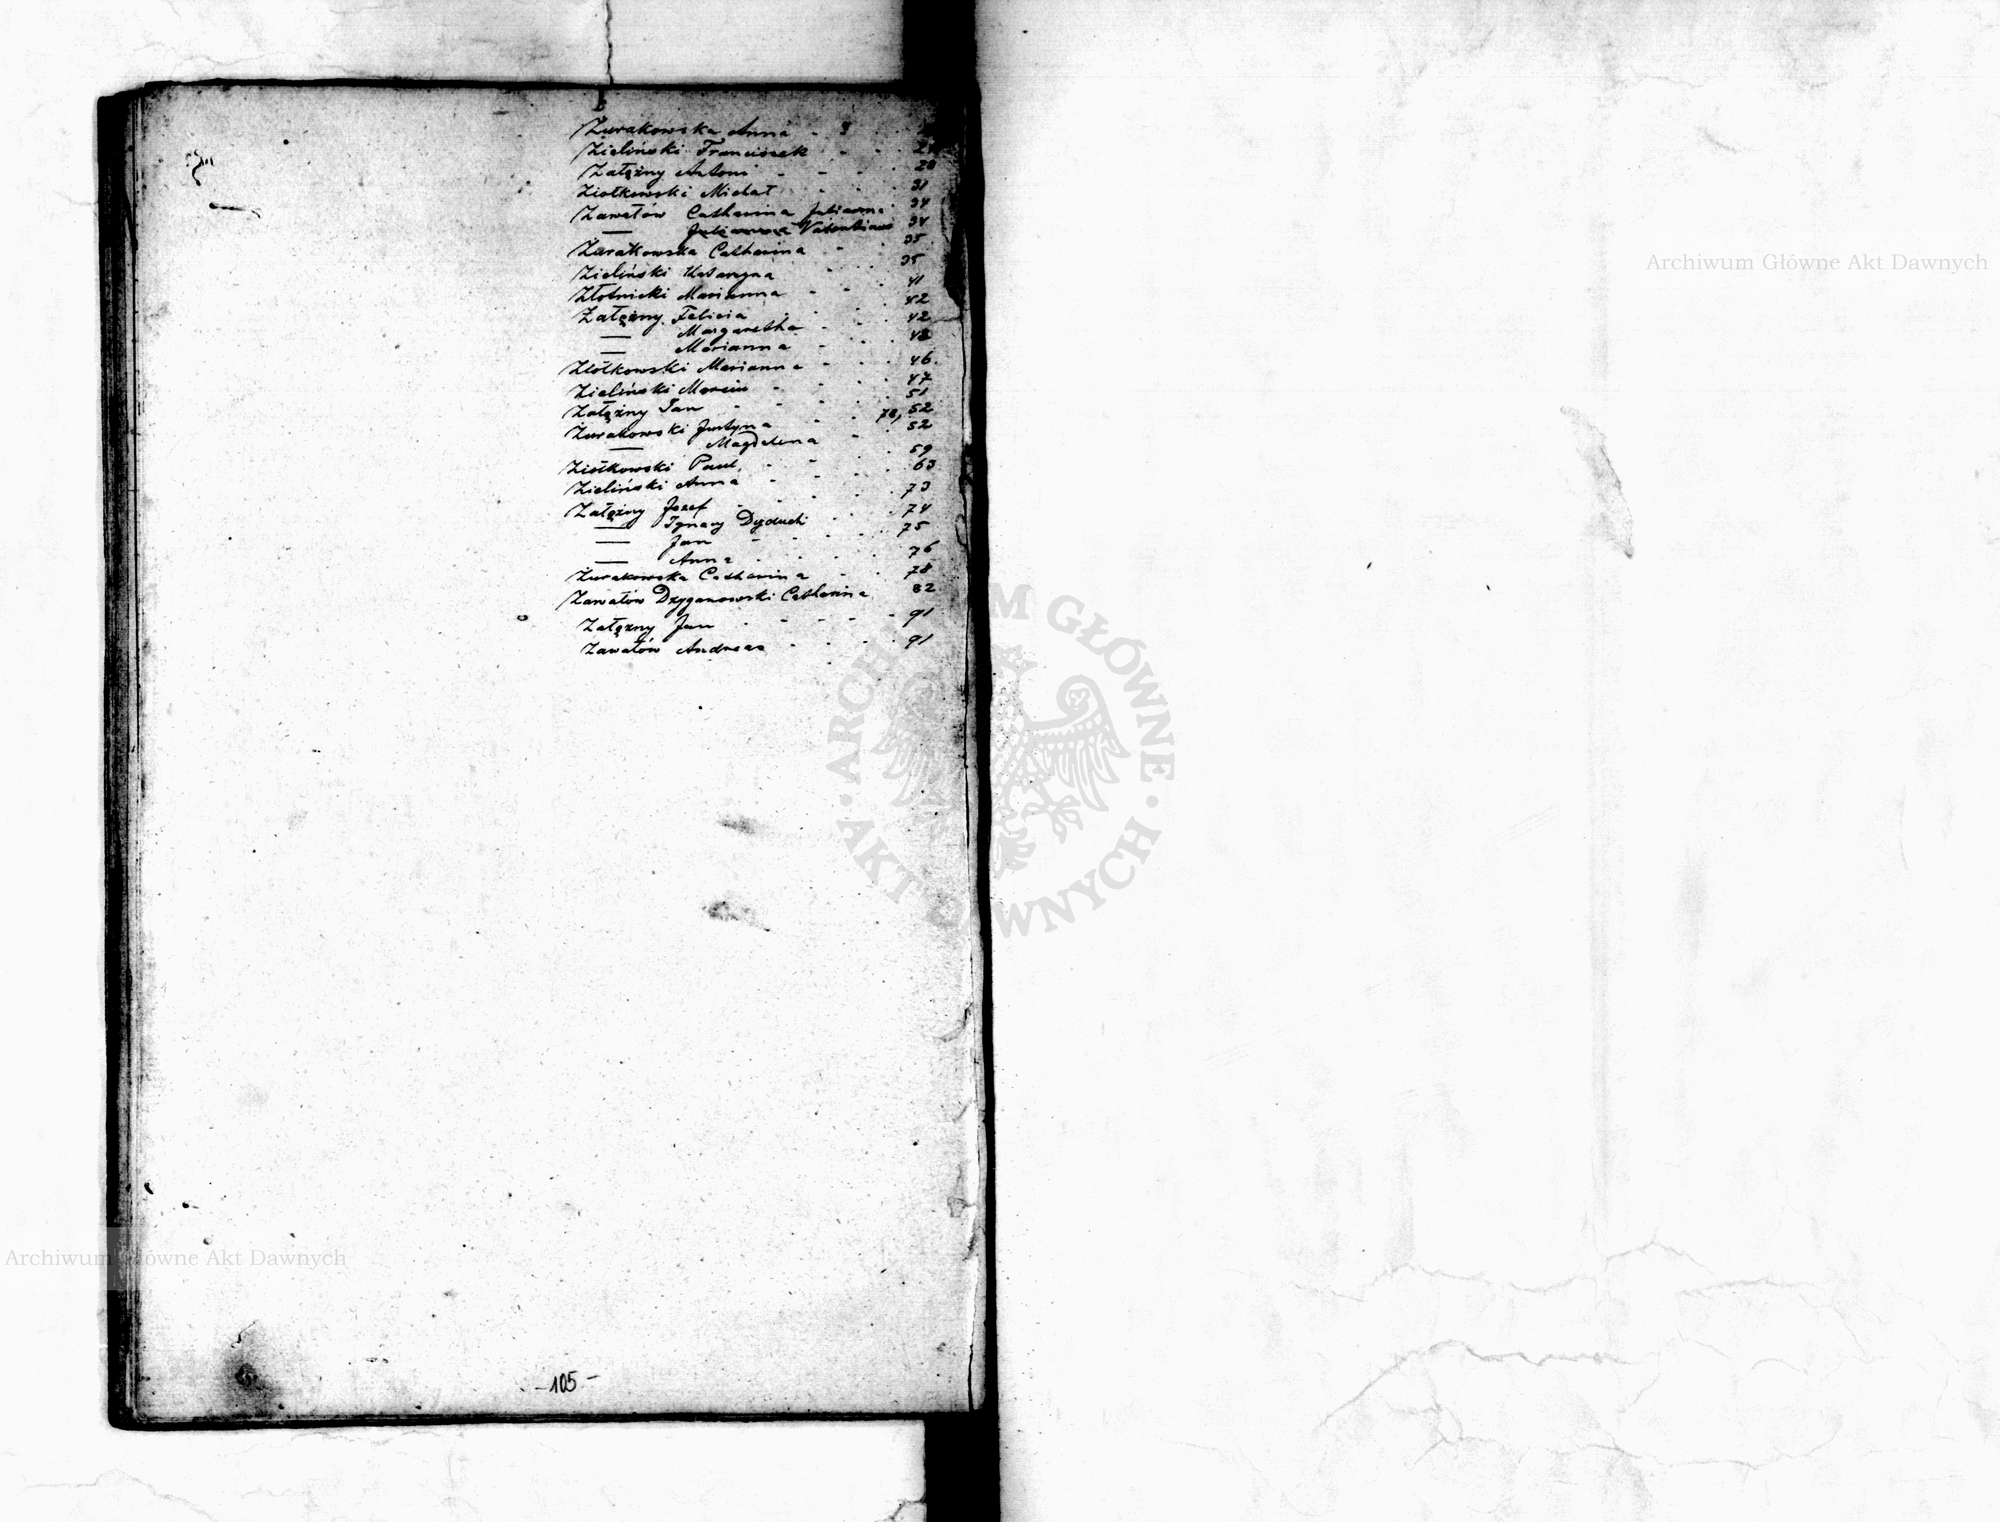 Żurakowska Anna - 3
Zieliński Franciszek - - 2
Załężny Antoni - - - 28
Ziołkowski Michał - - - 31
Zawałów Catharina Julianna 34
— Valentinus 34
Żurakowska Catharina - - 35
Zieliński Katarzyna - - - 35
Złotnicki Marianna - - - 41
Załężny Felicia - - - 42
— Margaretha - - 42
— Marianna - - 42
Ziółkowski Marianna - - - 46
Zieliński Marcin - - - 47
Załężny Jan - - - 51
Żurakowski Justyna - - 78, 52
— Magdalena - 52
Ziółkowski Paul - - - 59
Zieliński Anna - - - 63
Załężny Józef - - - 73
— Ignacy Dyduch - - 74
— Jan - - - 75
— Anna - - - 76
Żurakowska Catharina - - 78
Zawałów Dzyganowski Catharina 82
Załężny Jan - - - 91
Zawałów Andreas - - - 91
- 105 -
Archiwum Główne Akt Dawnych
ARCHIWUM GŁÓWNE · AKT DAWNYCH ·
Archiwum Główne Akt Dawnych